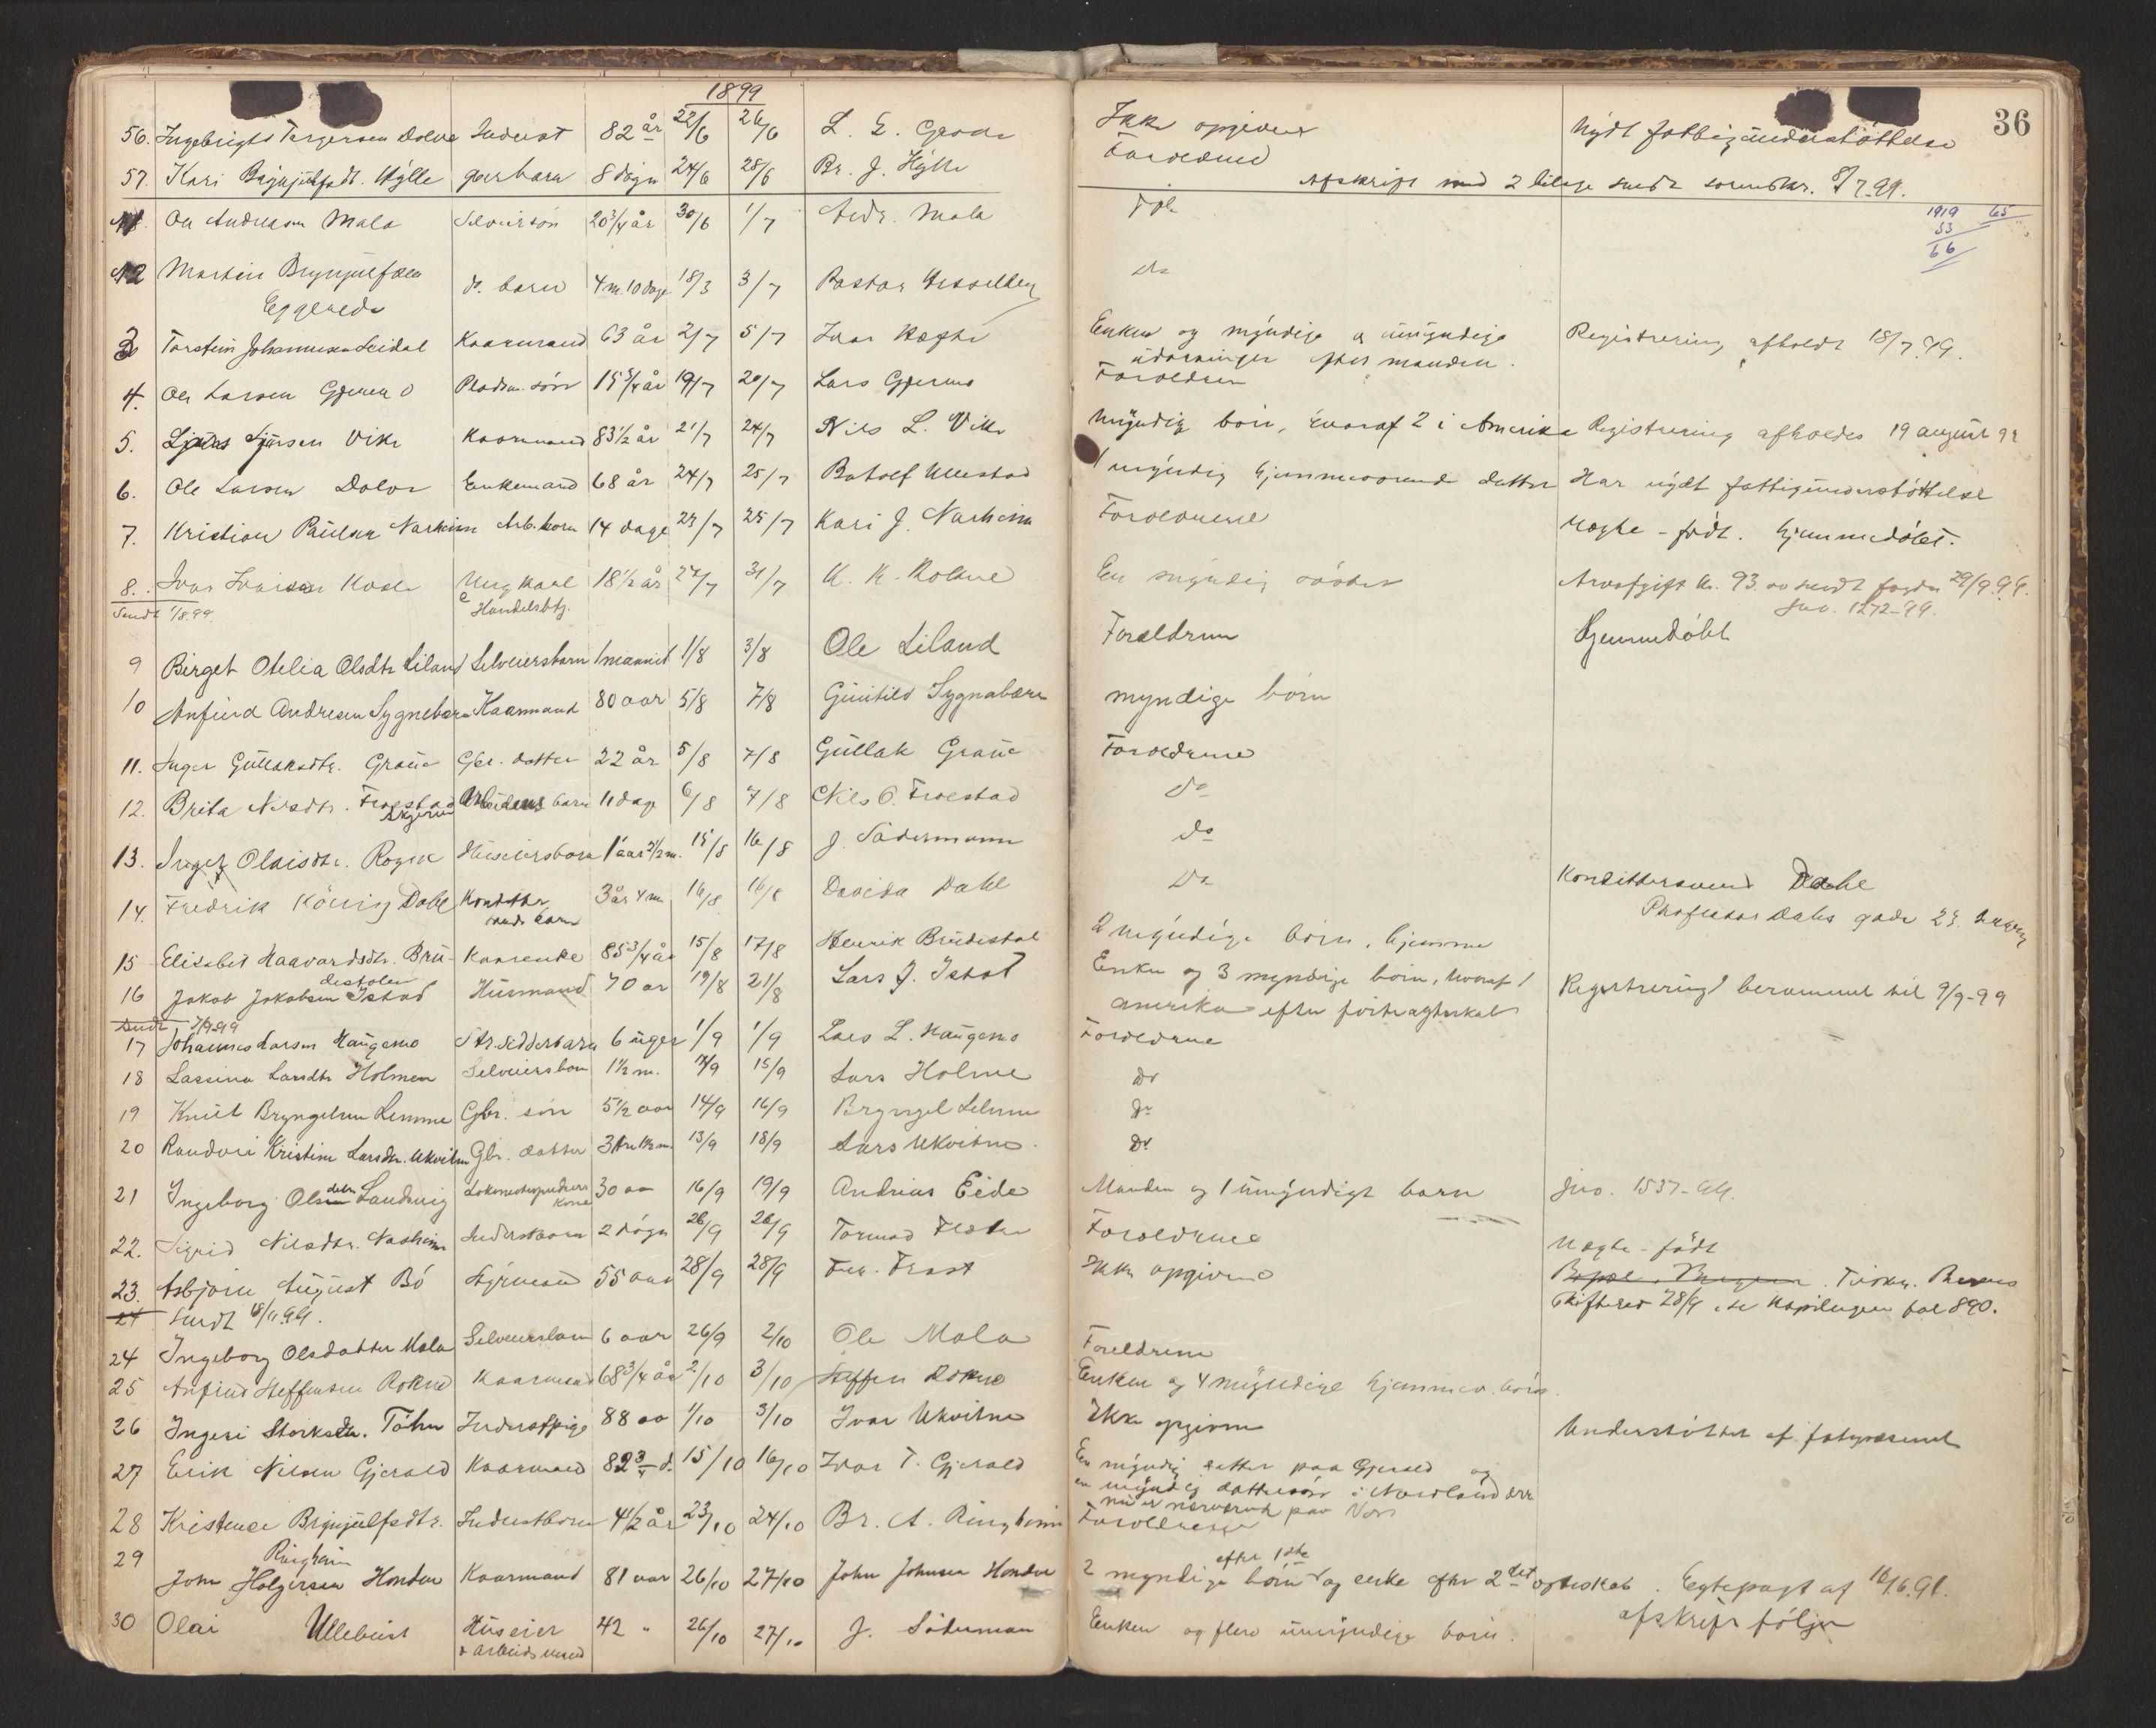 1899
36
56. Ingebrigt Torgersen Dolve Inderst 82 år 22/6 26/6 L. E. Ikke opgivet Nydt fattigunderstøttelse
57. Kari Brynjulfsdt. Hylle gbr barn 8 døgn 24/6 28/6 Br. J. Hylle Forældrene
Afskrift med 2 bilage sendt sorenskr. 8/7-99.
1. Ole Andersen Mala Selveiersøn 20 3/4 år 30/6 1/7 Andr. Mala
1919 65
53
66
2 Martin Brynjulfsen d. barn 4 m. 10 dage 18/3 3/7 Pastor Hesselberg do
Eggereide
3 Torstein Johannesen Seidal Kaarmand 63 år 2/7 5/7 Ivar Hæfte Enken og myndige og umyndige Registrering afholdt 18/7.99.
udarvinger efter manden.
4. Ole Larsen Gjerno Pladsm. søn 15 3/4 år 19/7 20/7 Lars Gjerno Forældrene
5. Sjurs Sjursen Vike Kaarmand 83 1/2 år 21/7 24/7 Nils L. Vike Myndig børn, hvoraf 2 i Amerika Registrering afholdes 19 august 99
6. Ole Larsen Dolve Enkemand 68 år 24/7 25/7 Botolf Ullestad 1 myndig hjemmeværende datter Har nydt fattigunderstøttelse
7. Kristian Paulsen Narheim Arb. barn 14 dage 23/7 25/7 Kari J. Narheim Forældrene Uægte - født. Hjemmedøbt.
8. Ivar Ivarsen Ungkarl 18 1/2 år 27/7 31/7 K. K. Rokne En myndig søster Arveafgift kr. 93.00 sendt fogden 29/9.99.
Sendt 1/8.99. Handelsbtj. Jno. 1272-99.
9 Birget Otelia Olsdtr Liland Selveiersbarn 1 maaned 1/8 3/8 Ole Liland Forældrene Hjemmedøbt
10 Anfind Andresen Sygnebære Kaarmand 80 aar 5/8 7/8 Gunhild Sygnabære myndige børn
11. Inger Gullaksdtr. Graue Gbr. datter 22 år 5/8 7/8 Gullak Graue Forældrene
12. Brita Nilsdtr. Froestad Arbeiders barn 11 dage 6/8 7/8 Nils O. Froestad do
13. Inger Olaisdtr. Rogne Huseiersbarn 1 aar 2 1/2 m. 15/8 16/8 J. Södermann do
14. Fredrik König Dahl Konditor 3 år 4 m 16/8 16/8 Davida Dahl do Konditorsvend Dahl
svends barn Professor Dahls gade 23.
15 Elisabet Haavardsdtr. Bru- Kaarenke 85 3/4 år 15/8 17/8 Henrik Brudestol 2 myndige børn, hjemme
destolen
16 Jakob Jakobsen Istad Husmand 70 år 19/8 21/8 Lars J. Istad Enke og 3 myndige børn, hvoraf 1 Registrering berammet til 9/9-99
Amerika efter
Sendt 1/9.99
17 Johannes Larsen Haugamo 6 uger 1/9 1/9 Lars L. Haugamo Forældrene
18 Lassina Larsdtr Holmen Selveiersbarn 1 1/2 m. 15/9 Lars Holme do
19 Knut Bryngelsen Lemme Gbr. søn 5 1/2 aar 14/9 16/9 Bryngel Lemme do
20 Randvei Kristine Larsdtr. Ukvitne Gbr. datter 13/9 18/9 Lars Ukvitne. do
21 Ingeborg Olsdatter Landsvig Lokomotivpudsers kone 30 aa 16/9 19/9 Andrias Eide Manden og 1 umyndigt barn Jno. 1537-99.
22. Sigrid Nilsdtr. Nasheim Inderstbarn 2 døgn 26/9 26/9 Tormod Forældrene Uægte - født
23. Asbjørn August Bø Styrmand 55 aar 28/9 28/9 Fr. Frast Ikke opgivne Bopæl. Bergen. Tilskr. Bergens
24 Sendt Skifteret 28/9, se Kopibogen fol 890.
24 Ingeborg Olsdatter Mala Selveiersbarn 6 aar 26/9 2/10 Ole Mala Forældrene
25 Anfind Steffensen Rokne Kaarmand 68 3/4 år 2/10 3/10 Steffen Rokne Enken og 4 myndige hjemmev. børn.
26 Ingeri Storksdtr. Inderstpige 88 aa 1/10 3/10 Ivar Ukvitne Ikke opgivne Understøttet af fatvæsenet
27 Erik Nilsen Gjerald Kaarmand 82 3/4 å. 15/10 16/10 Ivar T. Gjerald En myndig datter paa Gjerald og
en myndig dattersøn i Nordland der
nu er nærværende paa Voss
28 Kristense Brynjulfsdtr. Inderstbarn 4 1/2 år 23/10 24/10 Br. A. Ringheim Forældrene
Ringheim
29 John Holgersen Hondve Kaarmand 81 aar 26/10 27/10 John Johnsen Hondve 2 myndige børn efter 1ste og enke efter 2det egteskab. Egtepagt af 16/6.91.
afskrift følger
30 Olai Ullebust Huseier 42 " 26/10 27/10 J. Söderman Enken og flere umyndige børn.
& arbeidsmand